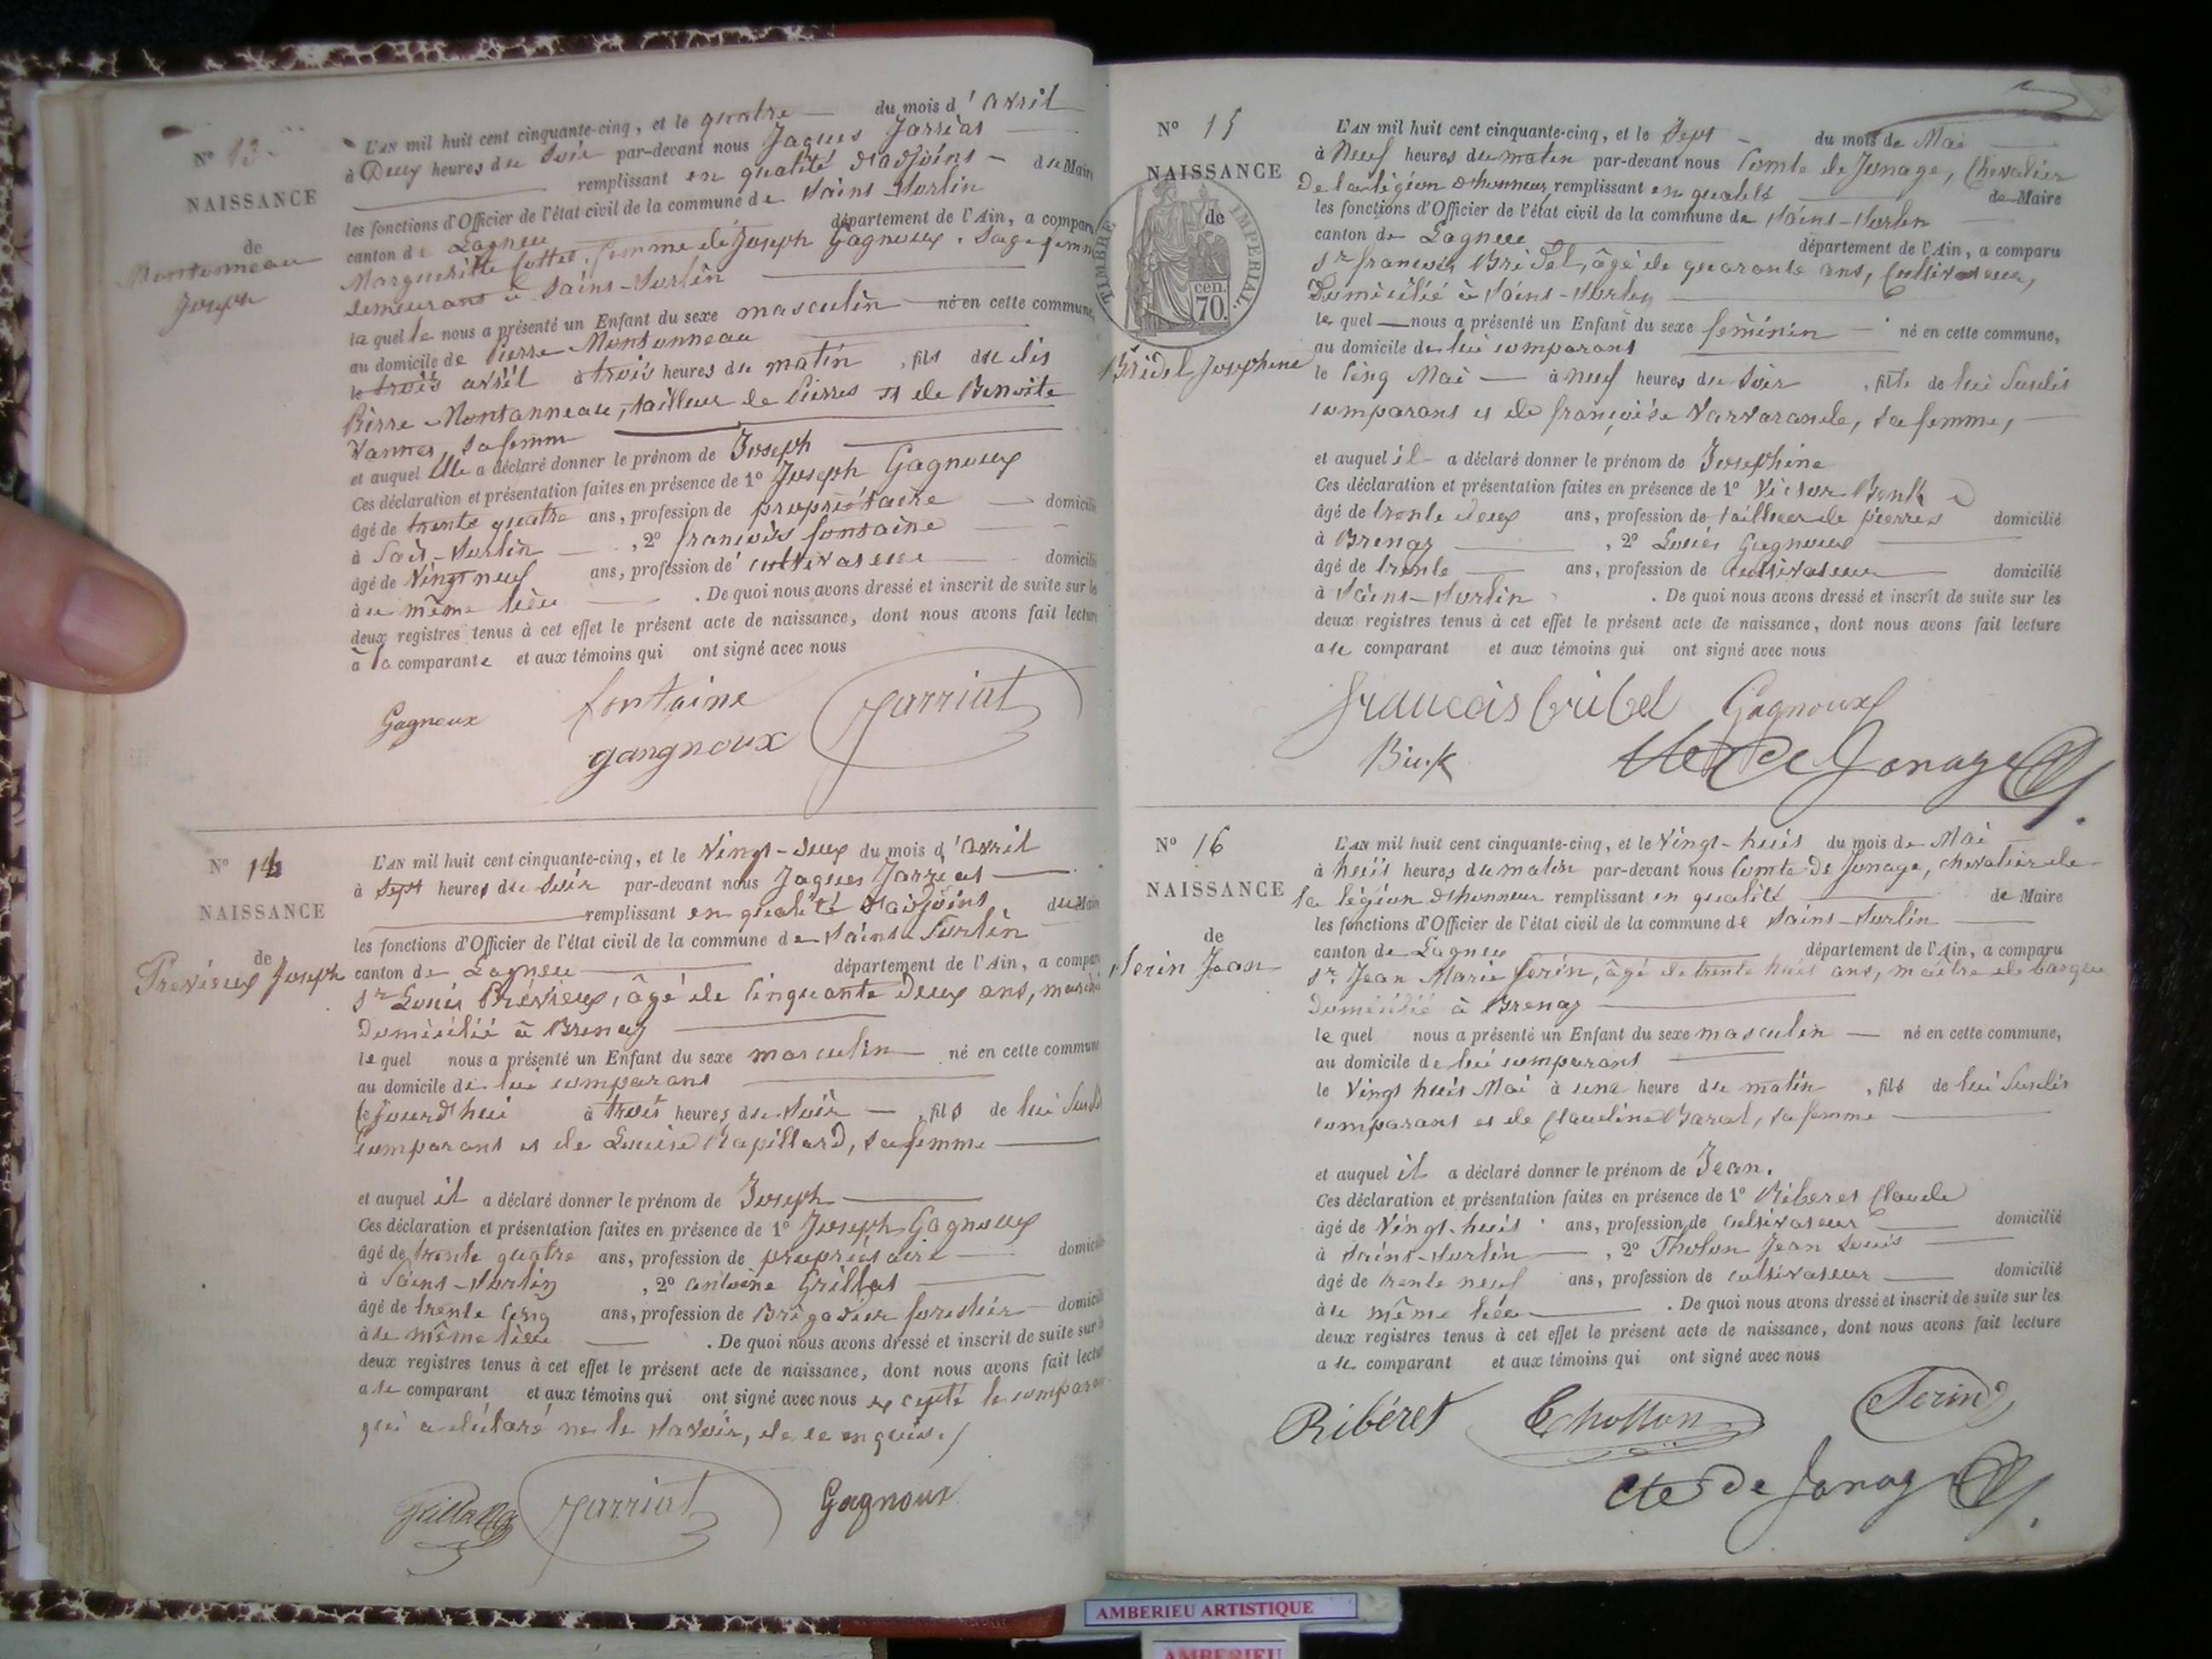 N° 13
NAISSANCE
de
Montonneau
Joseph
L'AN mil huit cent cinquante-cinq, et le quatre du mois d'avril
à Deux heures du soir par-devant nous Jaques Jarriat
remplissant en qualité d'adjoint du Maire
les fonctions d'Officier de l'état civil de la commune de Saint-Sorlin
canton de Lagneu département de l'Ain, a compar
Margueritte Cottet, femme de Joseph Gagnoux, Sage femm
demeurant à Saint-Sorlin
laquelle nous a présenté un Enfant du sexe masculin né en cette commune,
au domicile de Pierre Montonneau
le trois avril à trois heures du matin, fils du dit
Pierre Montonneau, tailleur de Pierres et de Benoite
Vannes, sa femme
et auquel Elle a déclaré donner le prénom de Joseph
Ces déclaration et présentation faites en présence de 1° Joseph Gagnoux
âgé de trente quatre ans, profession de propriétaire domicilié
à Saint-Sorlin, 2° françois fontaine
âgé de Vingt neuf ans, profession de cultivateur domicilié
à u même lieu. De quoi nous avons dressé et inscrit de suite sur le
deux registres tenus à cet effet le présent acte de naissance, dont nous avons fait lectur
à la comparante et aux témoins qui ont signé avec nous
Gagnoux fontaine Jarriat
gangnoux
N° 14
NAISSANCE
de
Previeux Joseph
L'AN mil huit cent cinquante-cinq, et le Vingt-deux du mois d'avril
à sept heures du soir par-devant nous Jaques Jarriat
remplissant en qualité d'adjoint du Maire
les fonctions d'Officier de l'état civil de la commune de Saint-Sorlin
canton de Lagneu département de l'Ain, a compar
Sr Louis Prévieux, âgé de Cinquante Deux ans,
Domicilié à Brenaz
lequel nous a présenté un Enfant du sexe masculin né en cette commune
au domicile de lui comparant
le Jourd'hui à trois heures du soir, fils de lui Susdit
Comparant et de Louise Rapillard, sa femme
et auquel il a déclaré donner le prénom de Joseph
Ces déclaration et présentation faites en présence de 1° Joseph Gagnoux
âgé de trente quatre ans, profession de propriétaire domicilié
à Saint-Sorlin, 2° antoine Grillat
âgé de trente Cinq ans, profession de Brigadier forestier domicilié
à u même lieu. De quoi nous avons dressé et inscrit de suite sur le
deux registres tenus à cet effet le présent acte de naissance, dont nous avons fait lectur
a le comparant et aux témoins qui ont signé avec nous excepté le comparant
qui a déclaré ne le savoir, de ce enquis./
Jarriat Gagnoux
N° 15
NAISSANCE
de
TIMBRE IMPERIAL
70 cen.
Bridel Josephine
L'AN mil huit cent cinquante-cinq, et le Sept du mois de Mai
à Neuf heures du matin par-devant nous Comte de Jonage, Chevalier
De la légion d'honneur, remplissant en qualité de Maire
les fonctions d'Officier de l'état civil de la commune de Saint-Sorlin
canton de Lagneu département de l'Ain, a comparu
Sr françois Bridel, âgé de quarante ans, Cultivateur,
Domicilié à Saint-Sorlin
lequel nous a présenté un Enfant du sexe féminin né en cette commune,
au domicile de lui comparant
le Cinq Mai à neuf heures du soir, fille de lui Susdit
comparant et de françoise Varvarande, sa femme,
et auquel il a déclaré donner le prénom de Josephine
Ces déclaration et présentation faites en présence de 1° Victor
âgé de trente deux ans, profession de tailleur de pierres domicilié
à Brenaz, 2° Louis Gagnoux
âgé de trente ans, profession de Cultivateur domicilié
à Saint-Sorlin. De quoi nous avons dressé et inscrit de suite sur les
deux registres tenus à cet effet le présent acte de naissance, dont nous avons fait lecture
a le comparant et aux témoins qui ont signé avec nous
francois bridel Gagnoux
Cte de Jonage
N° 16
NAISSANCE
de
Serin Jean
L'AN mil huit cent cinquante-cinq, et le Vingt-huit du mois de Mai
à huit heures du matin par-devant nous Comte De Jonage, chevalier de
la légion d'honneur remplissant en qualité de Maire
les fonctions d'Officier de l'état civil de la commune de Saint-Sorlin
canton de Lagneu département de l'Ain, a comparu
Sr. Jean Marie Serin, âgé de trente huit ans, maître de barque
Domicilié à Brenaz
lequel nous a présenté un Enfant du sexe masculin né en cette commune,
au domicile de lui comparant
le Vingt huit Mai à une heure du matin, fils de lui Susdit
comparant et de Claudine Barat, sa femme
et auquel il a déclaré donner le prénom de Jean.
Ces déclaration et présentation faites en présence de 1° Riberet Claude
âgé de Vingt-huit ans, profession de Cultivateur domicilié
à Saint-Sorlin, 2° Tholon Jean Louis
âgé de trente neuf ans, profession de cultivateur domicilié
à u même lieu. De quoi nous avons dressé et inscrit de suite sur les
deux registres tenus à cet effet le présent acte de naissance, dont nous avons fait lecture
a le comparant et aux témoins qui ont signé avec nous
Ribéret Serin
Cte de Jonage
AMBERIEU ARTISTIQUE
AMBERIEU